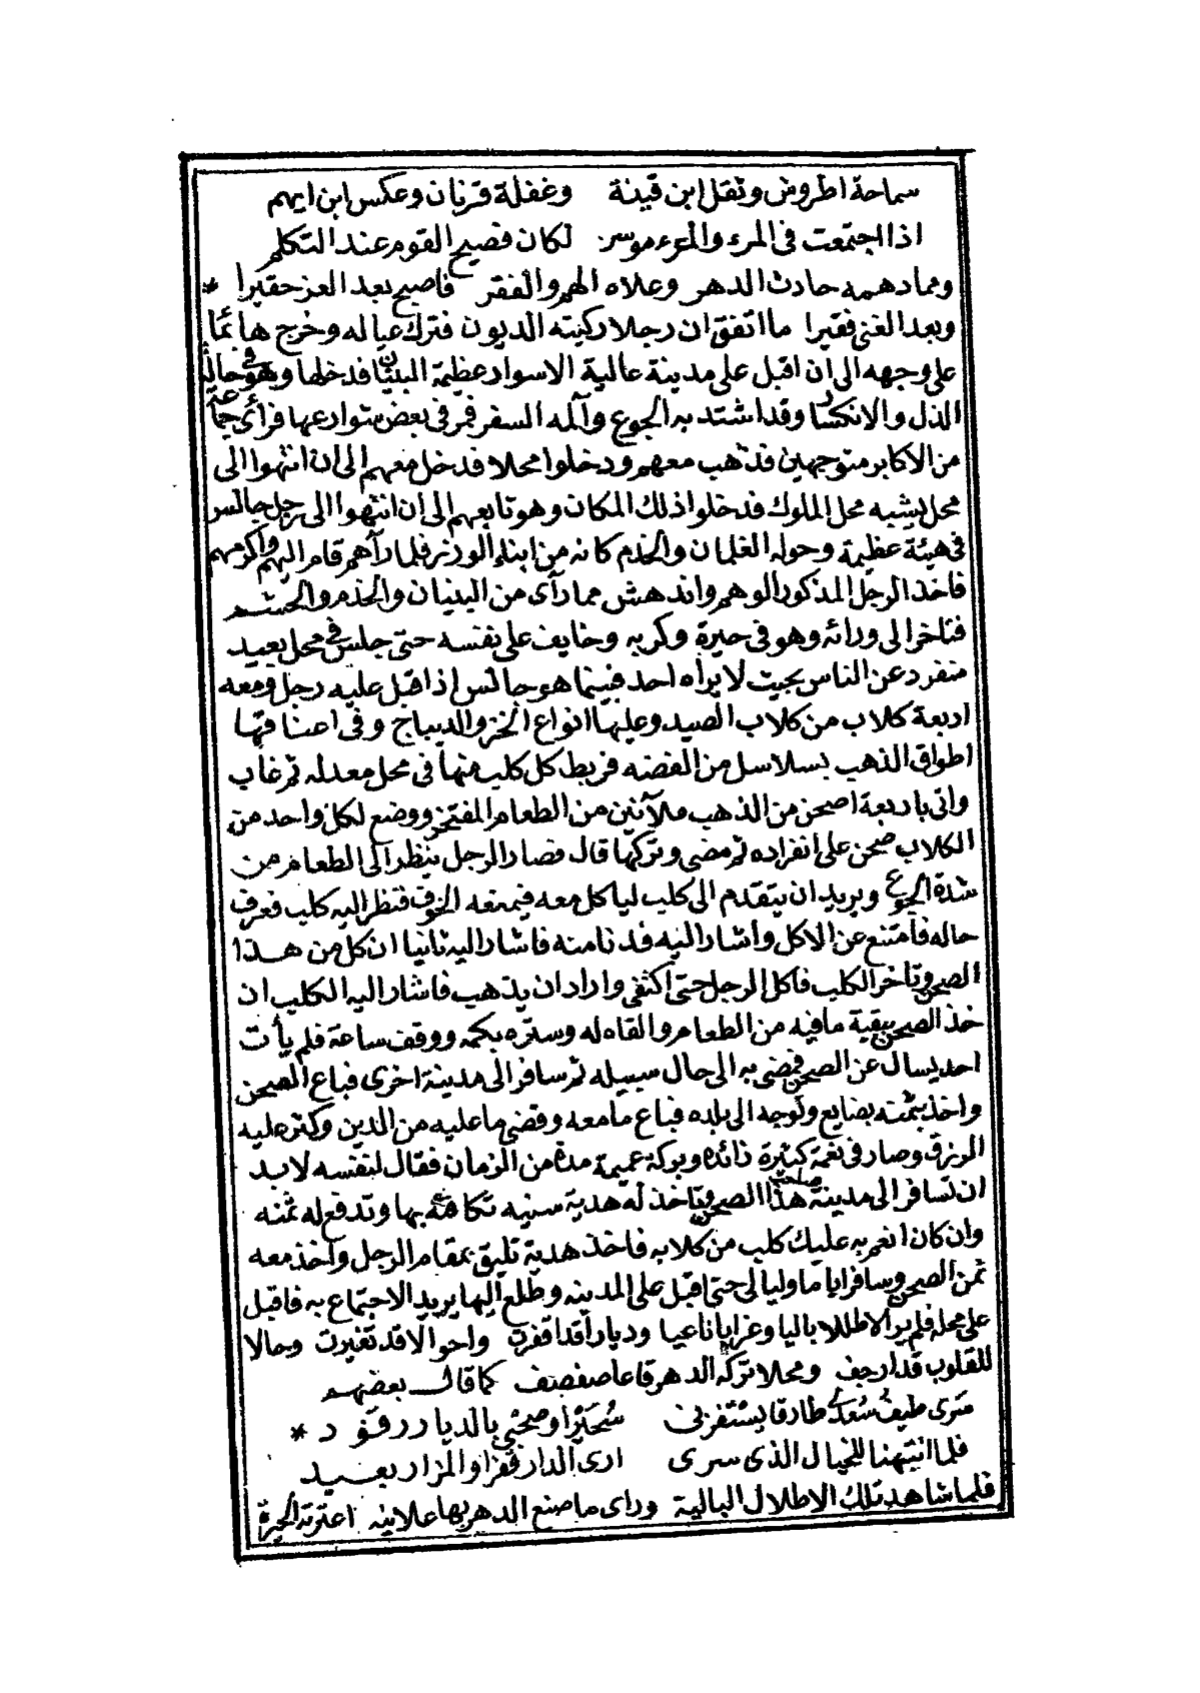 سماحة اطروش وثقل ابن قينة وغفلة قزنان وعكس ابن ايهم
اذا اجتمعت فى المرء والمرء موسر لكان فصيح القوم عند التكلم
ومما دهمه حادث الدهر وعلاه الهم والفقر فاصبح بعد العز حقيرا *
وبعد الغنى فقيرا ما اتفق ان رجلا ركبته الديون فترك عياله وخرج هائما
على وجهه الى ان اقبل على مدينة عالية الاسوار عظيمة البنيان فدخلها وهو فى حالة
الذل والانكسار وقد اشتد به الجوع وآلمه السفر فمر فى بعض شوارعها فرأى جماعة
من الاكابر متوجهين فذهب معهم ودخلوا محلا فدخل معهم الى ان انتهوا الى
محل يشبه محل الملوك فدخلوا ذلك المكان وهو تابعهم الى ان انتهوا الى رجل جالس
فى هيئة عظيمة وحوله الغلمان والخدم كانه من ابناء الوزر فلما رآهم قام اليهم واكرمهم
فاخذ الرجل المذكور الوهم واندهش مما رآى من البنيان والخدم والحشم
فتاخر الى ورائه وهو فى حيرة وكربه وخايف على نفسه حتى جلس فى محل بعيد
منفرد عن الناس بحيث لا يراه احد فبينما هو جالس اذ اقبل عليه رجل ومعه
اربعة كلاب من كلاب الصيد وعليها انواع الخز والديباج وفى اعناقها
اطواق الذهب بسلاسل من الفضه فربط كل كلب منها فى محل معد له ثم غاب
واتى باربعة اصحن من الذهب ملآنين من الطعام المفتخر ووضع لكل واحد من
الكلاب صحن على انفراده ثم مضى وتركها قال فصار الرجل ينظر الى الطعام من
شدة الجوع ويريد ان يتقدم الى كلب لياكل معه فيمنعه الخوف فنظر اليه كلب فعرف
حاله فامتنع عن الاكل واشار اليه فدنا منه فاشار اليه ثانيا ان كل من هذا
الصحن وتاخر الكلب فاكل الرجل حتى اكتفى واراد ان يذهب فاشار اليه الكلب ان
خذ الصحن ببقية ما فيه من الطعام والقاه له وستره بكمه ووقف ساعة فلم يأت
احد يسال عن الصحن فمضى به الى حال سبيله ثم سافر الى مدينة اخرى فباع الصحن
واخذ بثمنه بضايع وتوجه الى بلده فباع ما معه وقضى ما عليه من الدين وكثر عليه
الرزق وصار فى نعمة كثيرة زائده وبركة عميمة مدة من الزمان فقال لنفسه لا بد
ان تسافر الى مدينة صاحب هذا الصحن وتاخذ له هدية سنيه تكافئه بها وتدفع له ثمنه
وان كان انعم به عليك كلب من كلابه فاخذ هدية تليق بمقام الرجل واخذ معه
ثمن الصحن وسافر اياما وليالى حتى اقبل على المدينه وطلع اليها يريد الاجتماع به فاقبل
على محله فلم ير الا طللا باليا وغرابا ناعيا وديارا قد اقفرت واحوالا قد تغيرت وحالا
للقلوب قد ارجف ومحلا تركه الدهر قاعا صفصف كما قال بعضهم
سرى طيف سعدى طارقا يستفزنى سحيرا وصحبى بالديار رقود *
فلما انتبهنا للخيال الذى سرى ارى الدار قفرا والمزار بعيد
فلما شاهد تلك الاطلال البالية وراى ما صنع الدهر بها علانيه اعترته الحيرة